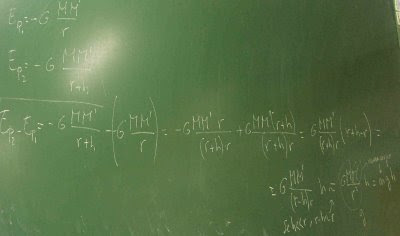 E_{P_1} = -G \frac{MM'}{r}
E_{P_2} = -G \frac{MM'}{r+h}
E_{P_2} - E_{P_1} = -G \frac{MM'}{r+h} - \left( G \frac{MM'}{r} \right) = -G \frac{MM' r}{(r+h) r} + G \frac{MM'(r+h)}{(r+h) r} = G \frac{MM'}{(r+h) r} (r+h-r) =
= G \frac{MM'}{(r+h) r} h = \left( G \frac{MM'}{r^2} \right) h = mgh
g